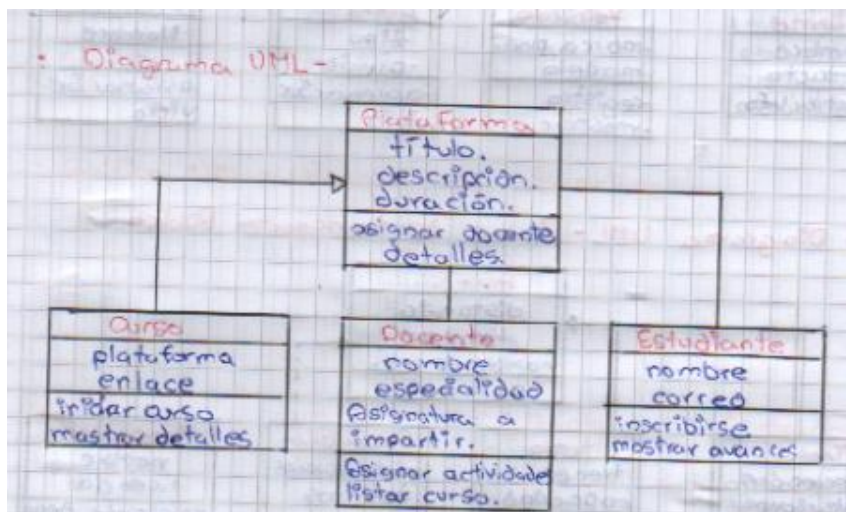 • Diagrama UML-
Plataforma
título.
descripción.
duración.
asignar docente
detalles.
Curso
plataforma
enlace
iniciar curso
mostrar detalles
Docente
nombre
especialidad
Asignatura a
impartir.
Asignar actividades
listar curso.
Estudiante
nombre
correo
inscribirse
mostrar avances